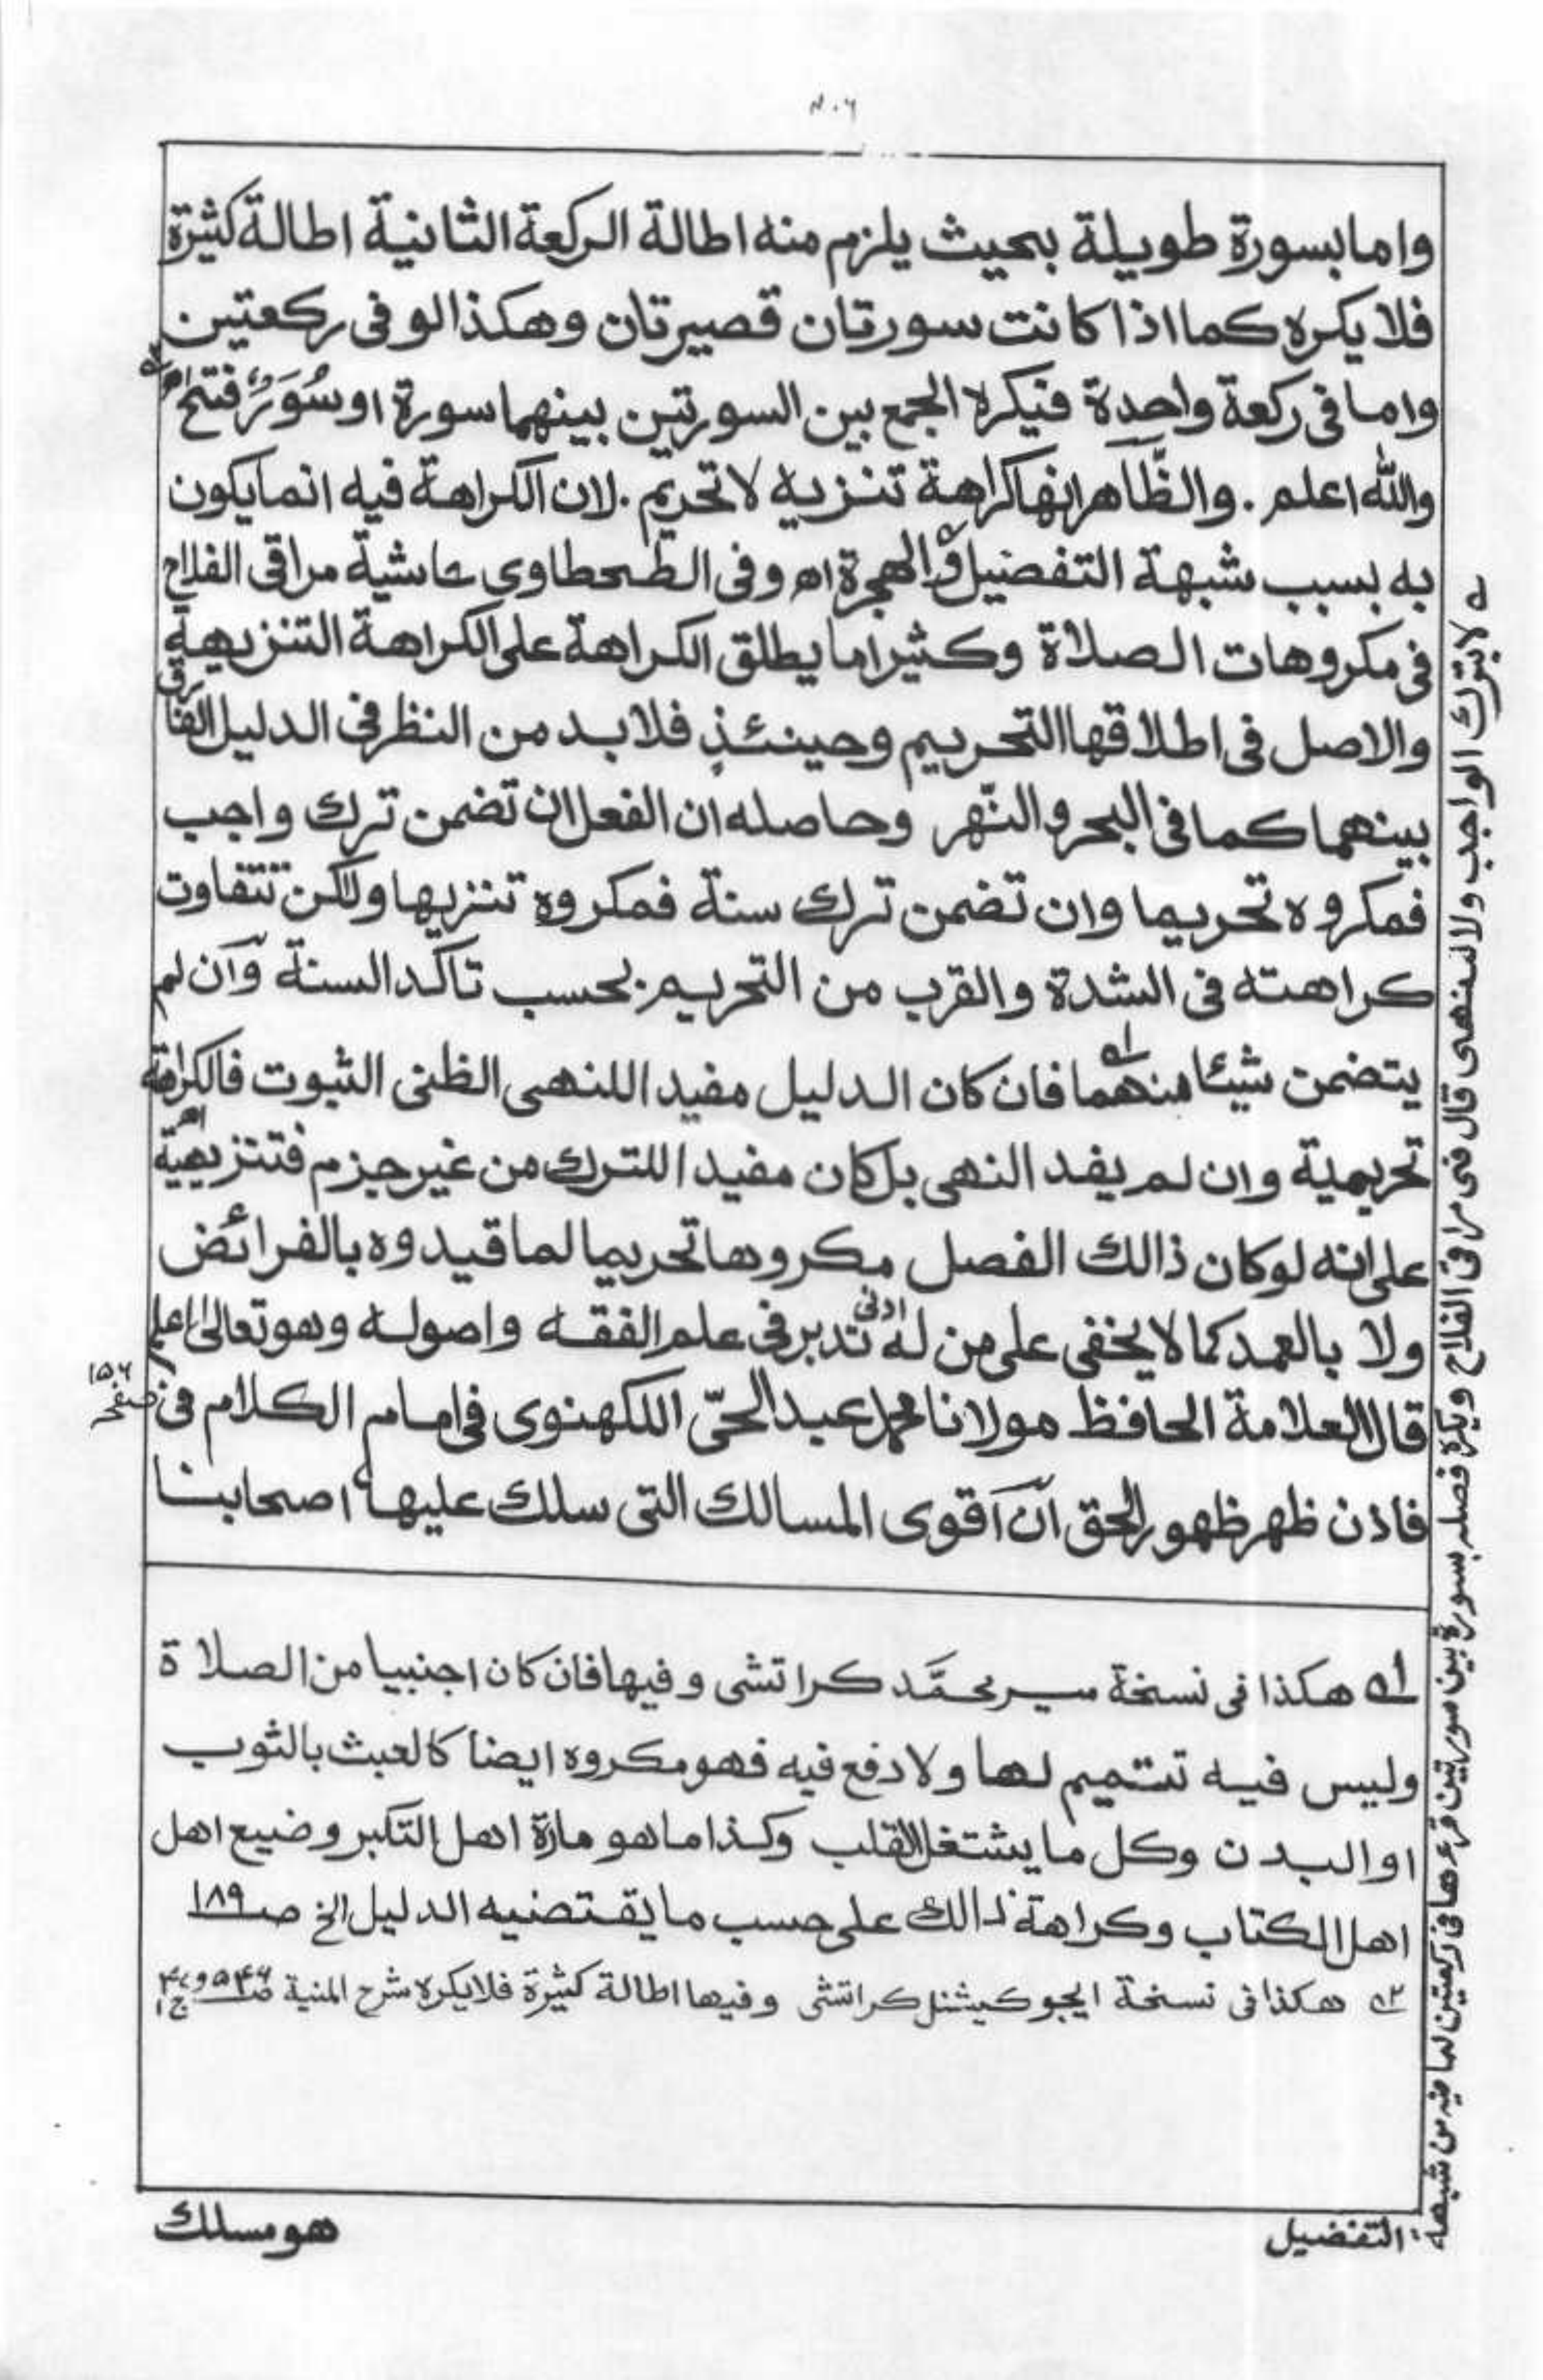 واما بسورة طويلة بحيث يلزم منه اطالة الركعة الثانية اطالة كثيرة
فلا يكره كما اذا كانت سورتان قصيرتان وهكذا لو فى ركعتين
واما فى ركعة واحدة فيكره الجمع بين السورتين بينهما سورة او سُوَرٌ فتح اھ
والله اعلم . والظّاهر انها كراهة تنزيه لا تحريم . لان الكراهة فيه انما يكون
به بسبب شبهة التفضيل والهجرة اھ وفى الطحطاوى حاشية مراقى الفلاح
فى مكروهات الصلاة وكثيرا ما يطلق الكراهة على الكراهة التنزيهية
والاصل فى اطلاقها التحريم وحينئذٍ فلا بد من النظر فى الدليل الفارق
بينهما كما فى البحر والنّهر وحاصله ان الفعل ان تضمن ترك واجب
فمكروه تحريما وان تضمن ترك سنة فمكروه تنزيها ولٰكن تتفاوت
كراهته فى الشدة والقرب من التحريم . بحسب تاكد السنة وآن لم
يتضمن شيئا منهما فان كان الدليل مفيدا للنهى الظنى الثبوت فالكراهة
تحريمية وان لم يفد النهى بل كان مفيدا للترك من غير جزم فتنزيهية اھ
على انه لو كان ذالك الفصل مكروها تحريما لما قيدوه بالفرائض
ولا بالعمد كما لا يخفى على من له ادنى تدبر فى علم الفقه واصوله وهو تعالىٰ اعلم
قال العلامة الحافظ مولانا محمد عبد الحىّ اللكهنوى فى امام الكلام فى صفحہ ١٥٦
فاذن ظهر ظهور الحق انّ اقوى المسالك التى سلك عليها اصحابنا
لا بترك الواجب ولا للنهى قال فى مراقى الفلاح ويكره فصله بسورة بين سورتين قرءهما فى ركعتين لما فيه من شبهة
التفضيل
١ هكذا فى نسخة مير محمَّد كراتشى وفيها فان كان اجنبيا من الصلاة
وليس فيه تتميم لها ولا دفع فيه فهو مكروه ايضا كالعبث بالثوب
او البدن وكل ما يشتغل القلب وكذا ما هو مارة اهل التكبر وضيع اهل
اهل الكتاب وكراهة ذالك على حسب ما يقتضيه الدليل الخ صـ ١٨٩
٢ هكذا فى نسخة ايجوكيشنل كراتشى وفيها اطالة كثيرة فلا يكره شرح المنية
هو مسلك